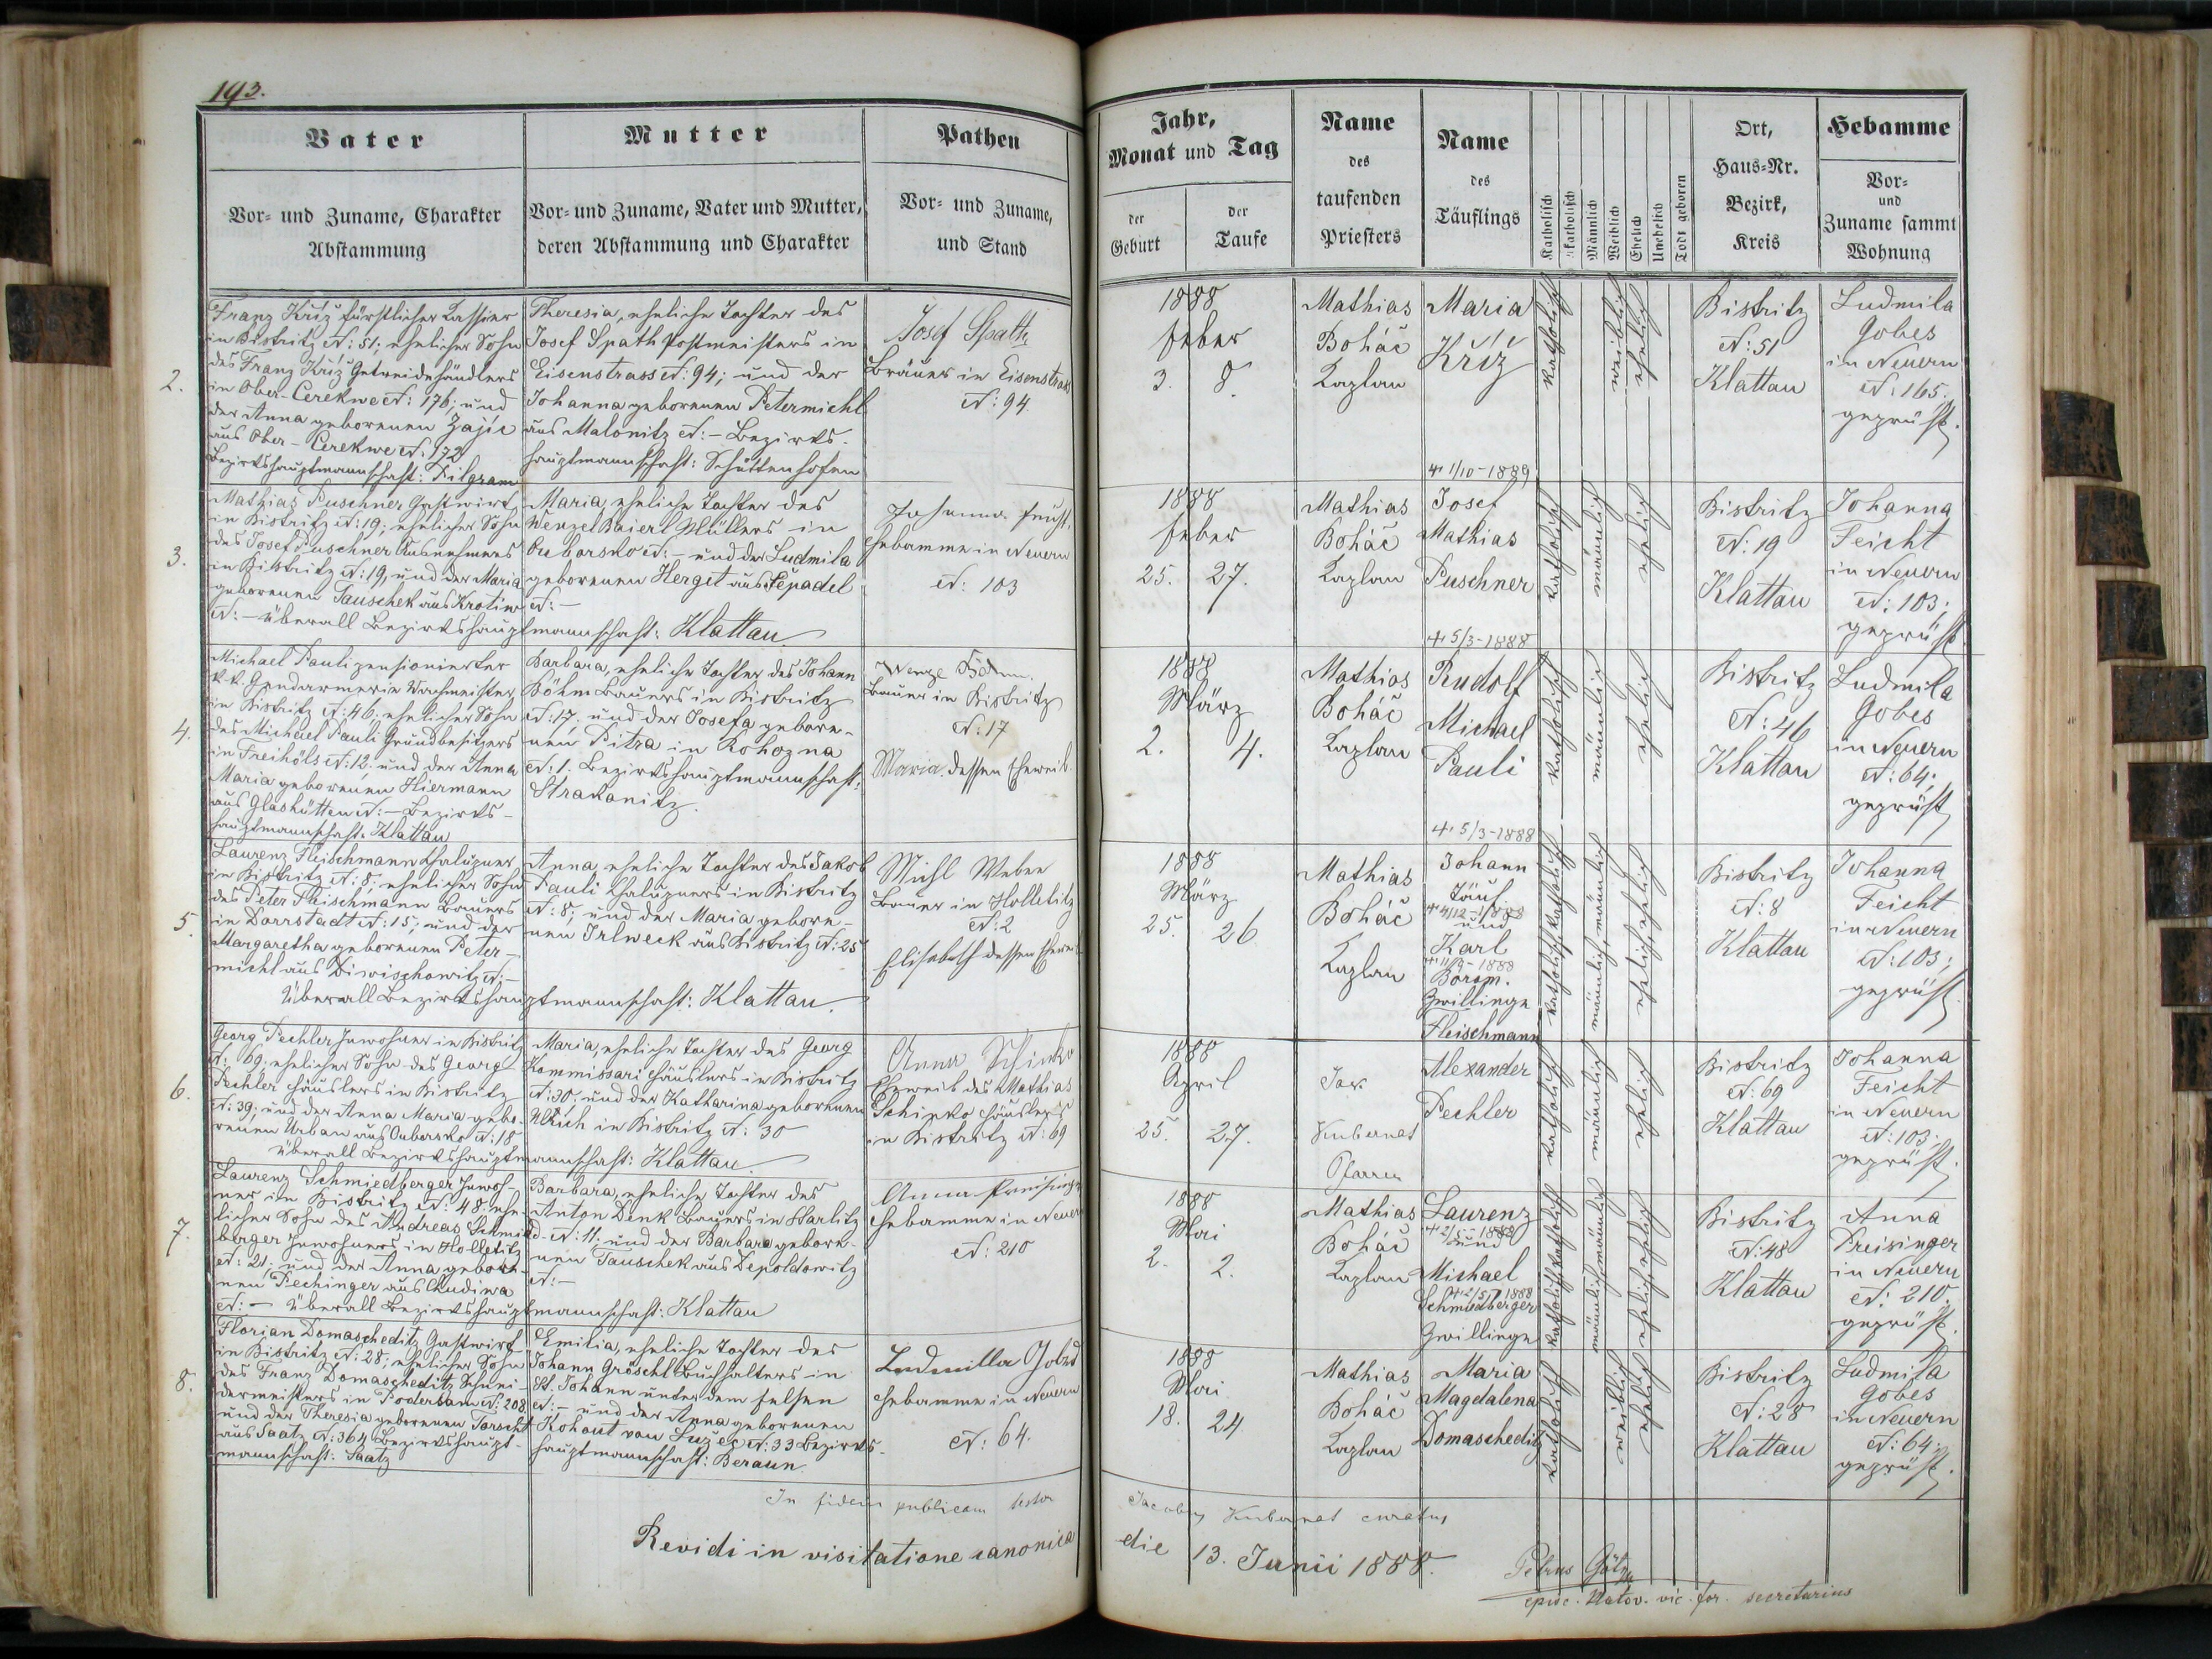 193.
Vater
Vor- und Zuname, Charakter
Abstammung
Mutter
Vor- und Zuname, Vater und Mutter,
deren Abstammung und Charakter
Pathen
Vor- und Zuname,
und Stand
Jahr,
Monat und Tag
der
Geburt
der
Taufe
Name
des
taufenden
Priesters
Name
des
Täuflings
Katholisch
Akatholisch
Männlich
Weiblich
Ehelich
Unehelich
Todt geboren
Ort,
Haus-Nr.
Bezirk,
Kreis
Hebamme
Vor-
und
Zuname sammt
Wohnung
2.
Franz Křiž fürstlicher Cassier
in Bistritz N: 51; ehelicher Sohn
des Franz Křiž Getreidehändlers
in Ober-Cerekwe N: 176; und
der Anna geborenen Zajic
aus Ober-Cerekwe N: 172
Bezirkshauptmannschaft: Pilgram
Theresia, eheliche Tochter des
Josef Spath Postmeisters in
Eisenstrass N: 94; und der
Johanna geborenen Petermichl
aus Malonitz N: – Bezirks-
hauptmannschaft: Schüttenhofen
Josef Spath
Bräuer in Eisenstrass
N: 94.
1888
Feber
3. 8.
Mathias
Boháč
Kaplan
Maria
Křiž
+ 1/10-1889
katholisch
weiblich
ehelich
Bistritz
N: 51
Klattau
Ludmila
Gobes
in Neuern
N: 165.
geprüft.
3.
Mathias Puschner Gastwirt
in Bistritz N: 19; ehelicher Sohn
des Josef Puschner Ausnehmers
in Bistritz N: 19, und der Maria
geborenen Tauschek aus Krotiw
N: – überall Bezirkshauptmannschaft: Klattau
Maria, eheliche Tochter des
Wenzel Baierl Müllers in
Auborsko N: – und der Ludmila
geborenen Herget aus Depadel
N: –
Johanna Feicht,
Hebamme in Neuern
N: 103
1888
Feber
25. 27.
Mathias
Boháč
Kaplan
Josef
Mathias
Puschner
+ 5/3-1888
katholisch
männlich
ehelich
Bistritz
N: 19
Klattau
Johanna
Feicht
in Neuern
N: 103;
geprüft.
4.
Michael Pauli pensionierter
k.k. Gendarmerie Wachmeister
in Bistritz N: 46. ehelicher Sohn
des Michael Pauli Grundbesitzers
in Freihöls N: 12; und der Anna
Maria geborenen Hiermann
aus Glashütten N: – Bezirks-
hauptmannschaft. Klattau
Barbara, eheliche Tochter des Johann
Böhm Bauers in Bistritz
N: 17. und der Josefa gebore-
nen Pitra in Rohozna
N: 1. Bezirkshauptmannschaft:
Strakonitz.
Bauer in Bistritz
N: 17
Maria, dessen Eheweib
1888
März
2. 4.
Mathias
Boháč
Kaplan
Rudolf
Michael
Pauli
+ 5/3-1888
katholisch
männlich
ehelich
Bistritz
N: 46
Klattau
Ludmila
Gobes
in Neuern
N: 64;
geprüft
5.
Laurenz Fleischmann Chalupner
in Bistritz N: 8; ehelicher Sohn
des Peter Fleischmann Bauers
in Dorrstadt N: 15; und der
Margaretha geborenen Peter-
michl aus Diwischowitz N: –
Überall Bezirkshauptmannschaft: Klattau.
Anna, eheliche Tochter des Jakob
Pauli Chalupners in Bistritz
N: 8; und der Maria gebore-
nen Irlweck aus Bistritz N: 25
Michl Weber
Bauer in Holletitz
N: 2
Elisabeth dessen Eheweib
1888
März
25. 26
Mathias
Boháč
Kaplan
Johann
Täuf.
+ 4/12-1888
und
Karl
Borom.
Zwillinge
Fleischmann
katholisch katholisch
männlich, männlich
ehelich ehelich
Bistritz
N: 8
Klattau
Johanna
Feicht
in Neuern
N: 103;
geprüft.
6.
Georg Pechler Inwohner in Bistritz
N: 69; ehelicher Sohn des Georg
Pechler Häuslers in Bistritz
N: 39; und der Anna Maria gebo-
renen Urban aus Auborsko N: 18
überall Bezirkshauptmannschaft: Klattau.
Maria, eheliche Tochter des Georg
Kommissari Häuslers in Bistritz
N: 30; und der Katharina geborenen
Ulrich in Bistritz N: 30
Anna Schinko
Eheweib des Mathias
Schinko Häuslers
in Bistritz N: 69
1888
April
25. 27.
Jak.
Kubernat
Pfarrer
Alexander
Pechler
katholisch
männlich
ehelich
Bistritz
N: 69
Klattau
Johanna
Feicht
in Neuern
N: 103;
geprüft.
7.
Laurenz Schmiedberger Inwoh-
ner in Bistritz N: 48; ehe-
licher Sohn des Andreas Schmied-
berger Inwohners in Holletitz
N: 21; und der Anna gebore-
nen Pechinger aus Chudiwa
N: – überall Bezirkshauptmannschaft: Klattau
Barbara, eheliche Tochter des
Anton Denk Bauers in Harlitz
N: 11; und der Barbara gebore-
nen Tauschek aus Depoldowitz
N: –
Anna Preisinger
Hebamme in Neuern
N: 210
1888
Mai
2. 2.
Mathias
Boháč
Kaplan
Laurenz
+ 2/5 1888
und
Michael
+ 2/5 1888
Schmiedberger
Zwillinge
katholisch katholisch
männlich männlich
ehelich ehelich
Bistritz
N: 48
Klattau
Anna
Preisinger
in Neuern
N: 210.
geprüft.
8.
Florian Domascheditz Gastwirt
in Bistritz N: 28; ehelicher Sohn
des Franz Domascheditz Schnei-
dermeisters in Podersam N: 208
und der Theresia geborenen Torscht
aus Saatz N: 364 Bezirkshaupt-
mannschaft: Saatz
Emilia, eheliche Tochter des
Johann Gröschl Buchhalters in
St. Johann unter dem Felsen
N: – und der Anna geborenen
Kohout von Lužec N: 33 Bezirks-
hauptmannschaft: Beraun
Ludmilla Gobes
Hebamme in Neuern
N: 64.
1888
Mai
18. 24
Mathias
Boháč
Kaplan
Maria
Magdalena
Domascheditz
katholisch
weiblich
ehelich
Bistritz
N: 28
Klattau
Ludmila
Gobes
in Neuern
N: 64.
geprüft.
In fidem publicam testor Jacobus Kubernat curatus
Revidi in visitatione canonica die 13. Junii 1888.
Petrus
episc. vic. for. secretarius